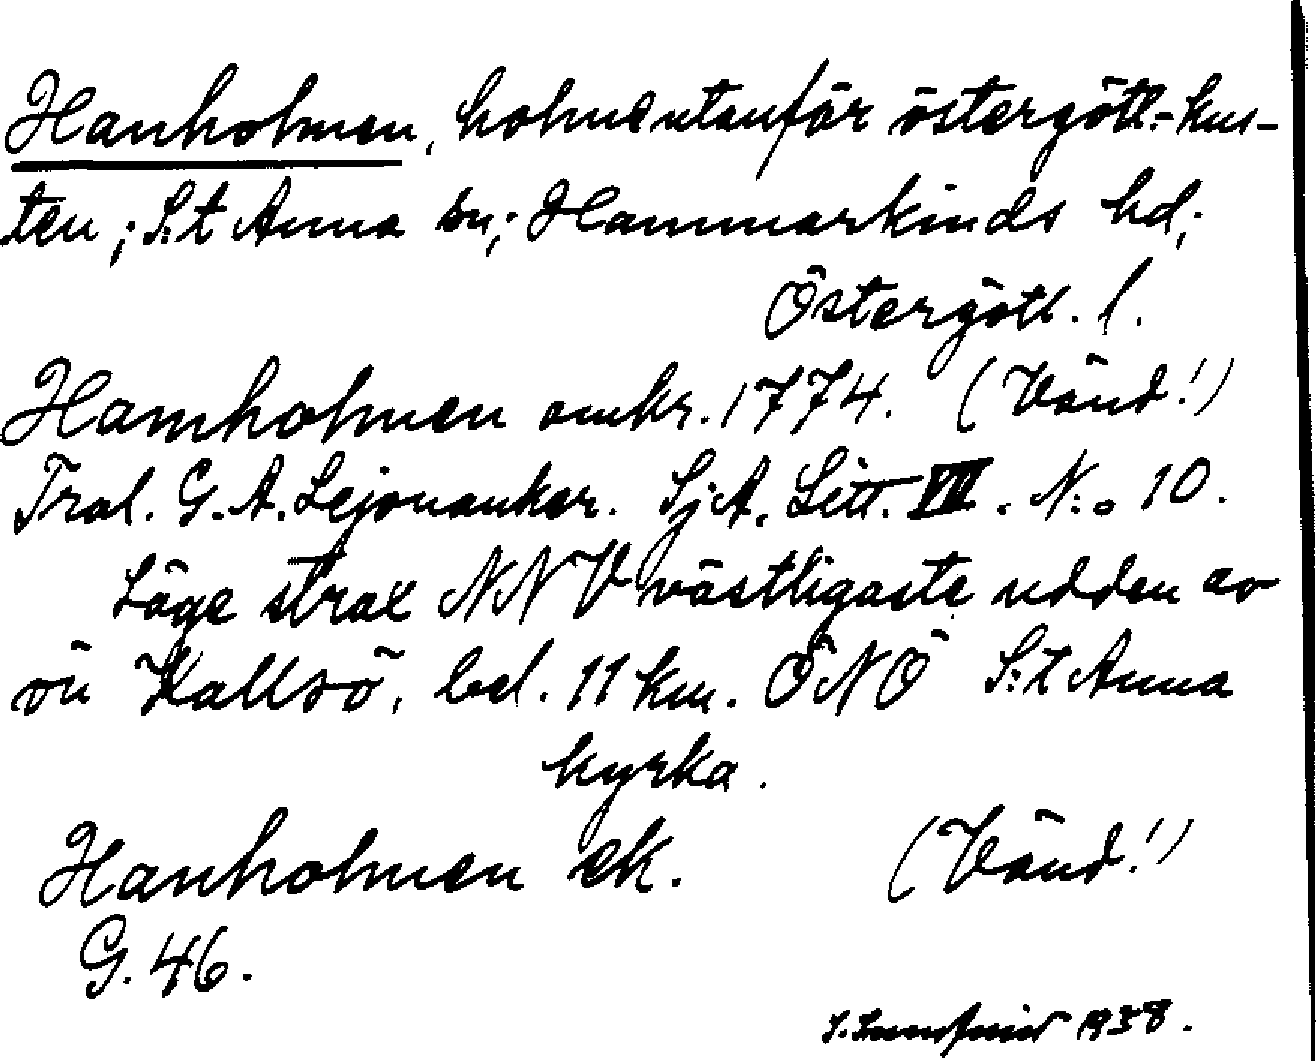 Hanholmen, holme utanför östergötl.-kus-
ten; S:t Anna sn; Hammarkinds hd;
Östergötl. l.
Hamholmen omkr. 1774. (Vänd!)
Tral. G. A. Lejonanker. SjA. Litt. VII. N:o 10.
Läge strax NNV västligaste udden av
ön Kallsö, bel. 11 km. ÖNÖ S:t Anna
kyrka.
Hanholmen ek. (Vänd!)
G. 46.
1938.